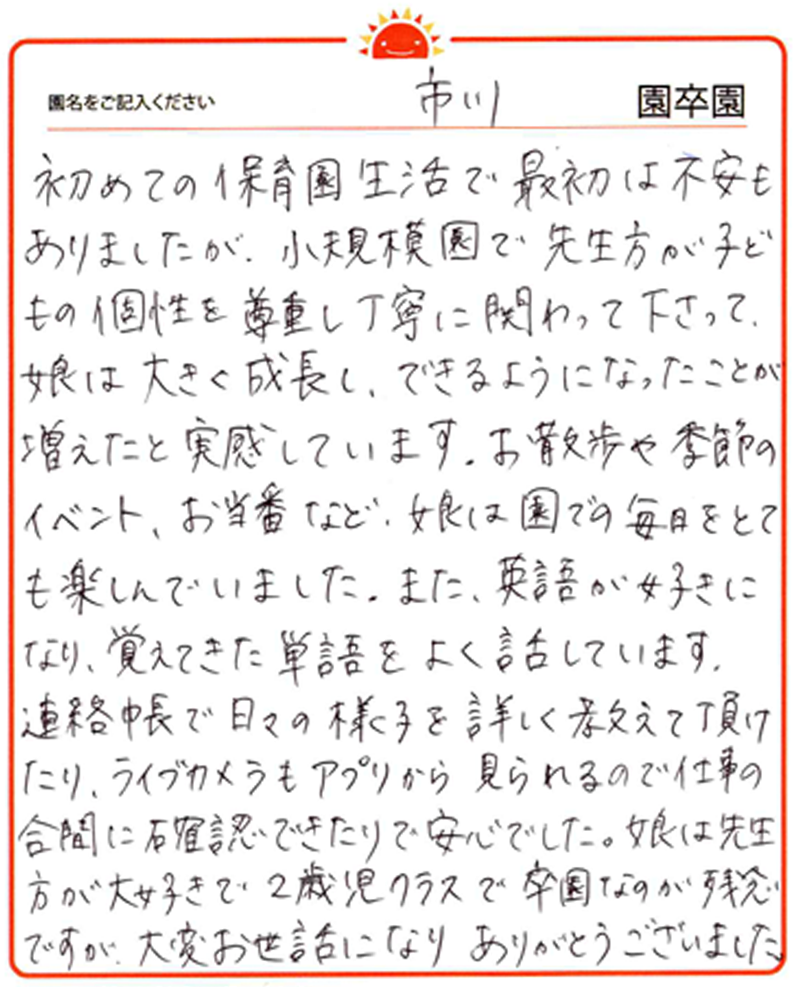 園名をご記入ください 市川 園卒園
初めての保育園生活で最初は不安も
ありましたが、小規模園で先生方が子ど
もの個性を尊重し丁寧に関わって下さって、
娘は大きく成長し、できるようになったことが
増えたと実感しています。お散歩や季節の
イベント、お当番など、娘は園での毎日をとて
も楽しんでいました。また、英語が好きに
なり、覚えてきた単語をよく話しています。
連絡帳で日々の様子を詳しく教えて頂け
たり、ライブカメラもアプリから見られるので仕事の
合間に確認できたりで安心でした。娘は先生
方が大好きで2歳児クラスで卒園なのが残念
ですが、大変お世話になりありがとうございました。